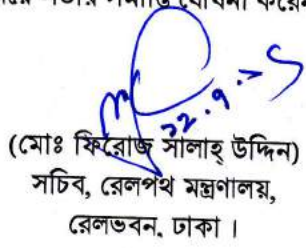 সভার সমাপ্তি ঘোষনা করেন
২২.৭.১৫
(মোঃ ফিরোজ সালাহ্ উদ্দিন)
সচিব, রেলপথ মন্ত্রণালয়,
রেলভবন, ঢাকা ।